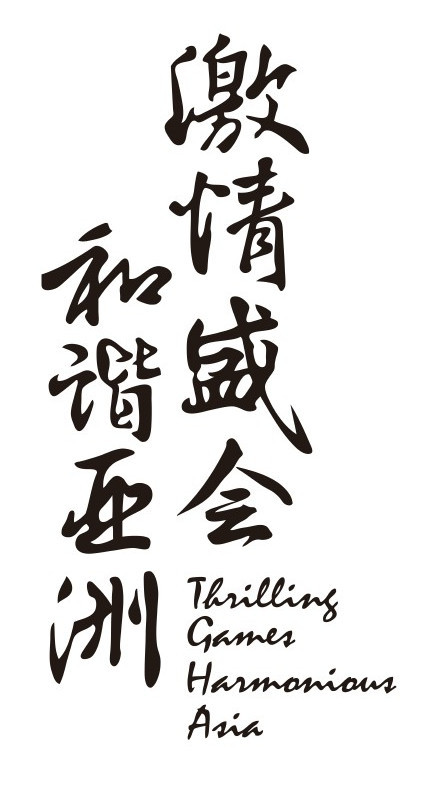 激情盛会
和谐亚洲
Thrilling
Games
Harmonious
Asia